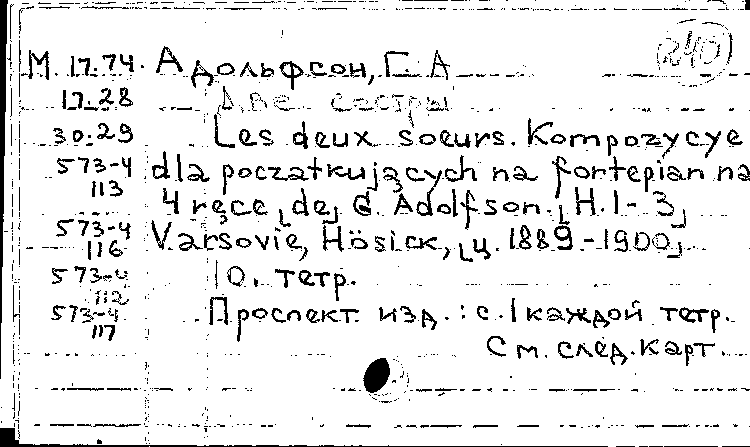 240
М. 17.74. Адольфсон, Г. А
17.28 Две сестры
30.29 Les deux soeurs. Kompozycye
573-4 dla początkujących na fortepian na
113
4 ręce [de] G. Adolfson. [H. 1-3]
573-4 Varsovie, Hösick, [ц. 1889-1900]
116
573-4 10. тетр.
112
573-4 Проспект изд.: с. 1 каждой тетр.
117
См. след. карт.